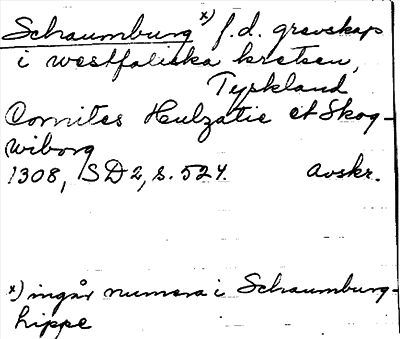 Schaumburg x) f.d. grevskap
i westfaliska kretsen,
Tyskland
Comites Hulzatie et Skog-
wiborg
1308, SD2, s. 524. Avskr.
x) ingår numera i Schaumburg-
Lippe